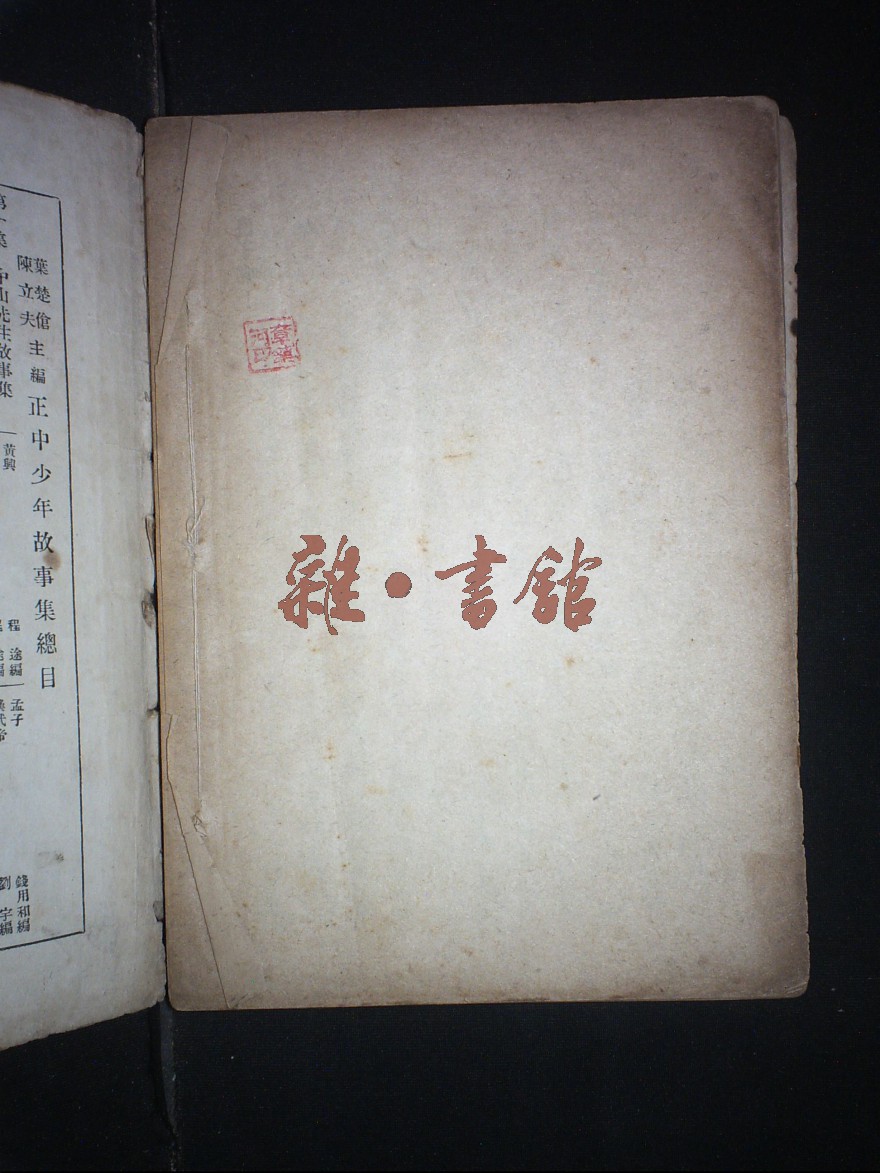 葉楚傖
陳立夫
主編
正中少年故事集總目
第一集 中山先生故事集
黃興
程途編
孟子
錢用和編
漢武帝
劉宇編
雜·書館